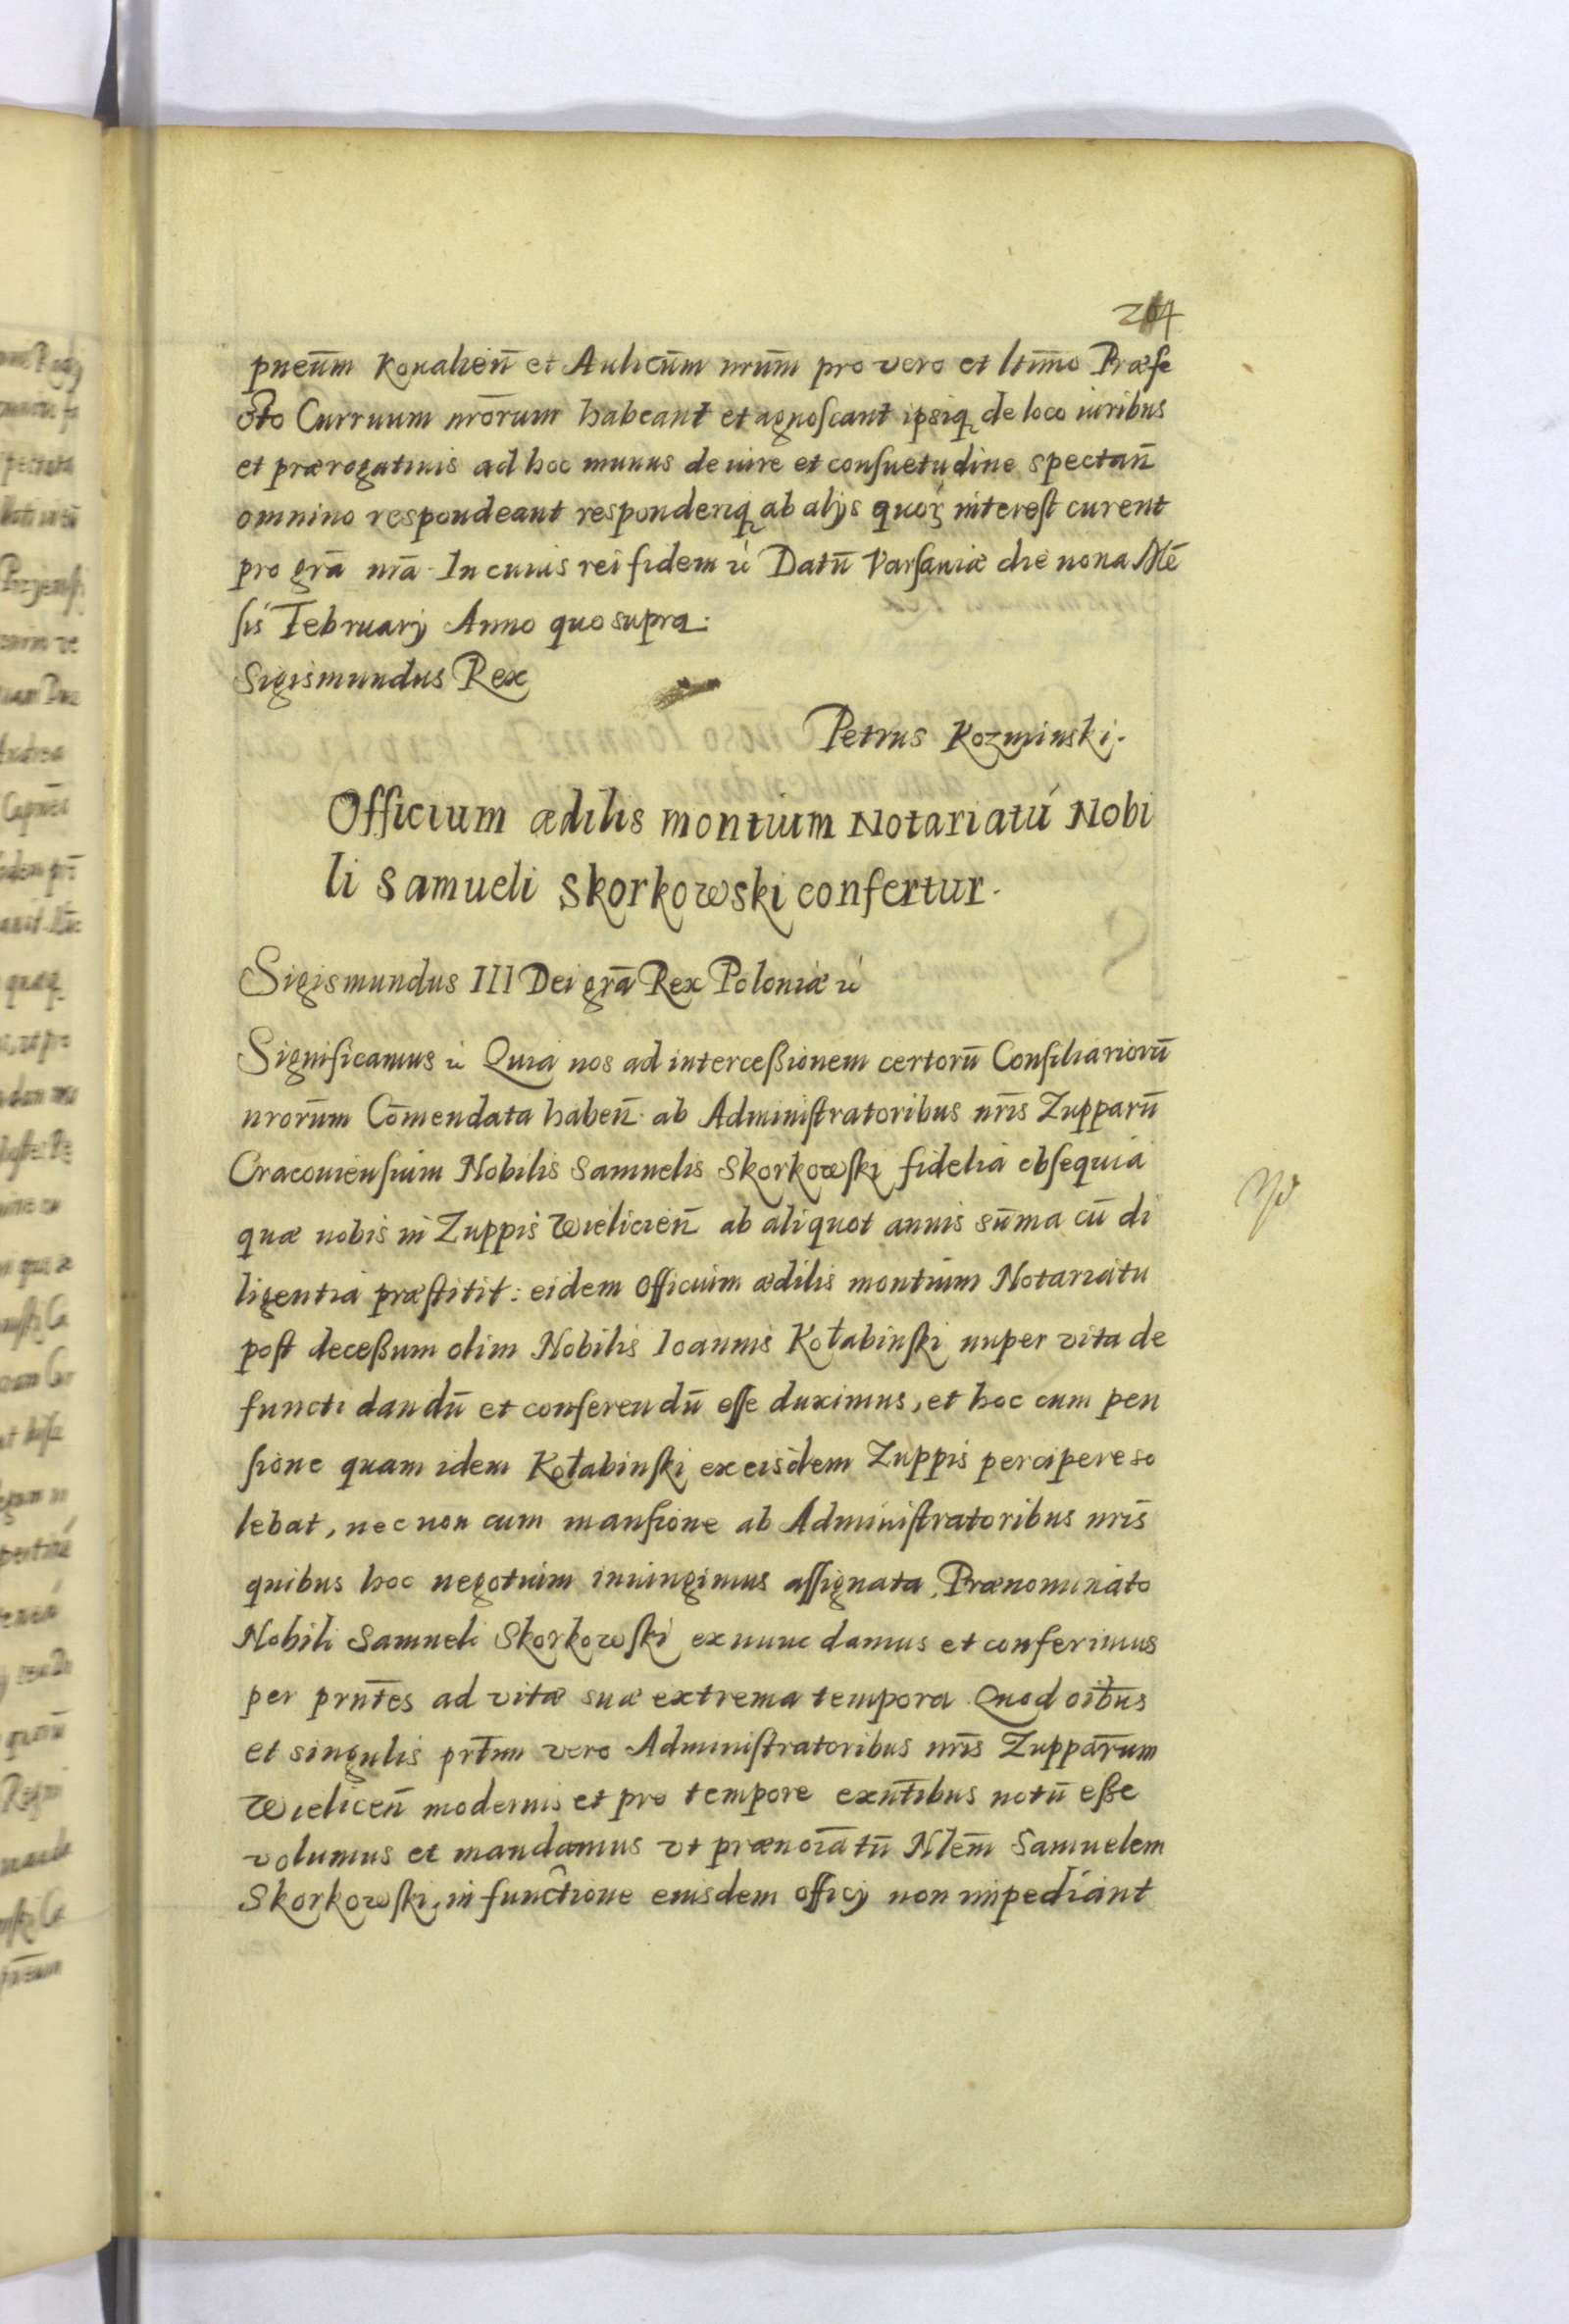 204
pneūm Kovalieñ et Aulicūm nrūm pro vero et ltīmo Præfe
cto Curruum nrōrum habeant et agnoscant ipsiq de loco iuribus
et prærogatiuis ad hoc munus de iure et consuetudine spectañ
omnino respondeant responderiq ab alijs quoꝝ interest curent
pro grā nrā. In cuius rei fidem &c Datū Varsaviæ die nona Mē
sis February Anno quo supra.
Sigismundus Rex
Petrus Kozminski.
Officium ædilis montium Notariatú Nobi
li Samueli Skorkowski confertur.
Sigismundus III Dei grā Rex Poloniæ &c
Significamus &c Quia nos ad intercessionem certorū Consiliariorū
nrorūm Cōmendata habeñ. ab Administratoribus nrīs Zupparū
Cracouiensium Nobilis Samuelis Skorkowski fidelia obsequia
quæ nobis in Zuppis Wielicieñ ab aliquot annis sūma cū di
ligentia præstitit: eidem officium ædilis montium Notariatu
post decessum olim Nobilis Ioannis Kołabinski nuper vita de
functi dandū et conferendū esse duximus, et hoc cum pen
sione quam idem Kołabinski ex eisdem Zuppis percipere so
lebat, nec non cum mansione ab Administratoribus nrīs
quibus hoc negotium iniungimus assignata, Prænominato
Nobili Samueli Skorkowski ex nunc damus et conferimus
per prnt̄es ad vitæ suæ extrema tempora. Quod oib̄us
et singulis prt̄im vero Administratoribus nrīs Zuppārum
Wieliceñ modernis et pro tempore exnt̄ibus notū esse
volumus et mandamus vt prænoīatū Nlēm Samuelem
Skorkowski, in functione eiusdem officij non impediant